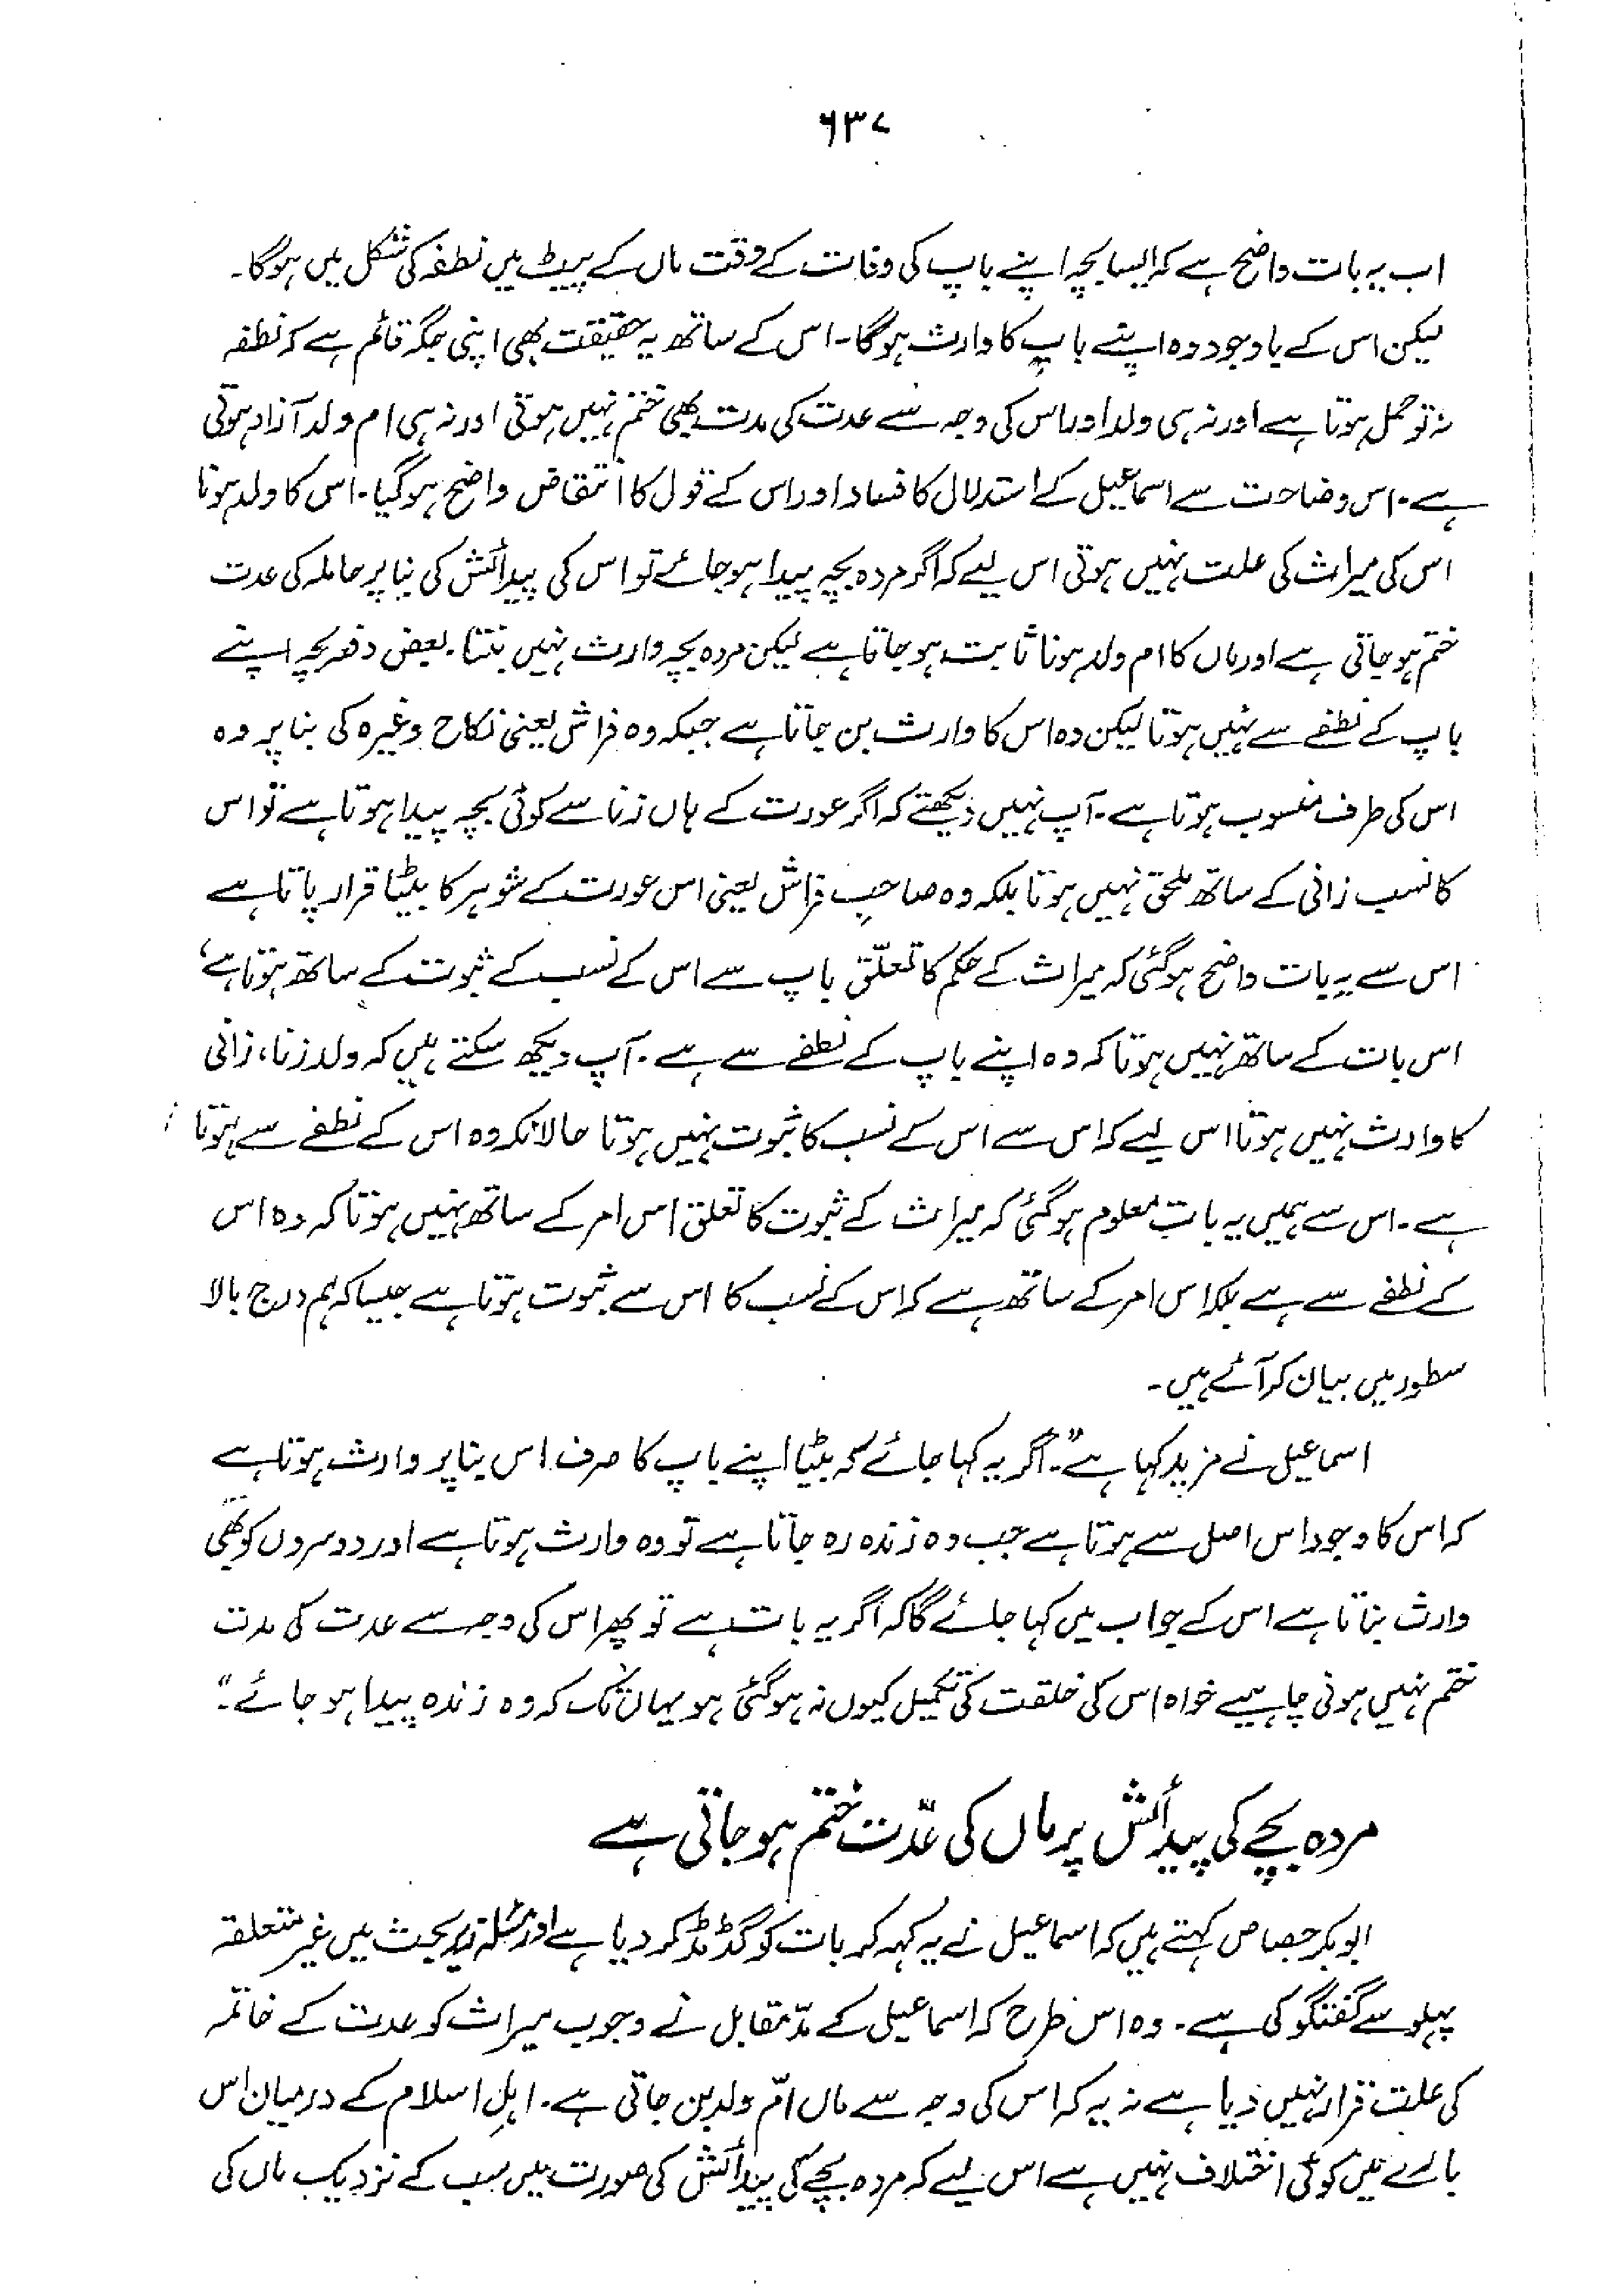 ۶۳۷
اب یہ بات واضح ہے کہ ایسا بچہ اپنے باپ کی وفات کے وقت ماں کے پیٹ میں نطفہ کی شکل میں ہوگا۔
لیکن اس کے باوجود وہ اپنے باپ کا وارث ہوگا۔ اس کے ساتھ یہ حقیقت بھی اپنی جگہ قائم ہے کہ نطفہ
نہ تو حمل ہوتا ہے اور نہ ہی ولد اور اس کی وجہ سے عدت کی مدت بھی ختم نہیں ہوتی اور نہ ہی ام ولد آزاد ہوتی
ہے۔ اس وضاحت سے اسماعیل کے استدلال کا فساد اور اس کے قول کا انتقاض واضح ہوگیا۔ اس کا ولد ہونا
اس کی میراث کی علت نہیں ہوتی اس لیے کہ اگر مردہ بچہ پیدا ہوجائے تو اس کی پیدائش کی بنا پر حاملہ کی عدت
ختم ہوجاتی ہے اور ماں کا ام ولد ہونا ثابت ہوجاتا ہے لیکن مردہ بچہ وارث نہیں بنتا۔ بعض دفعہ بچہ اپنے
باپ کے نطفے سے نہیں ہوتا لیکن وہ اس کا وارث بن جاتا ہے جبکہ وہ فراش یعنی نکاح وغیرہ کی بنا پر وہ
اس کی طرف منسوب ہوتا ہے۔ آپ نہیں دیکھتے کہ اگر عورت کے ہاں زنا سے کوئی بچہ پیدا ہوتا ہے تو اس
کا نسب زانی کے ساتھ ملحق نہیں ہوتا بلکہ وہ صاحبِ فراش یعنی اس عورت کے شوہر کا بیٹا قرار پاتا ہے
اس سے یہ بات واضح ہوگئی کہ میراث کے حکم کا تعلّق باپ سے اس کے نسب کے ثبوت کے ساتھ ہوتا ہے،
اس بات کے ساتھ نہیں ہوتا کہ وہ اپنے باپ کے نطفے سے ہے۔ آپ دیکھ سکتے ہیں کہ ولد زنا، زانی
کا وارث نہیں ہوتا اس لیے کہ اس سے اس کے نسب کا ثبوت نہیں ہوتا حالانکہ وہ اس کے نطفے سے ہوتا
ہے۔ اس سے ہمیں یہ بات معلوم ہوگئی کہ میراث کے ثبوت کا تعلق اس امر کے ساتھ نہیں ہوتا کہ وہ اس
کے نطفے سے ہے بلکہ اس امر کے ساتھ ہے کہ اس کے نسب کا اس سے ثبوت ہوتا ہے جیسا کہ ہم درج بالا
سطور میں بیان کر آئے ہیں۔
اسماعیل نے مزید کہا ہے۔ "اگر یہ کہا جائے کہ بیٹا اپنے باپ کا صرف اس بنا پر وارث ہوتا ہے
کہ اس کا وجود اس اصل سے ہوتا ہے جب وہ زندہ رہ جاتا ہے تو وہ وارث ہوتا ہے اور دوسروں کو بھی
وارث بناتا ہے اس کے جواب میں کہا جائے گا کہ اگر یہ بات ہے تو پھر اس کی وجہ سے عدت کی مدت
ختم نہیں ہونی چاہیے خواہ اس کی خلقت کی تکمیل کیوں نہ ہوگئی ہو یہاں تک کہ وہ زندہ پیدا ہو جائے۔"
مردہ بچے کی پیدائش پر ماں کی عدّت ختم ہو جاتی ہے
ابوبکر جصاص کہتے ہیں کہ اسماعیل نے یہ کہہ کر بات کو گڈمڈ کر دیا ہے اور مسئلہ زیر بحث میں غیر متعلقہ
پہلو سے گفتگو کی ہے۔ وہ اس طرح کہ اسماعیل کے مدّ مقابل نے وجوب میراث کو عدت کے خاتمہ
کی علت قرار نہیں دیا ہے نہ یہ کہ اس کی وجہ سے ماں امّ ولد بن جاتی ہے۔ اہلِ اسلام کے درمیان اس
بارے میں کوئی اختلاف نہیں ہے اس لیے کہ مردہ بچے کی پیدائش کی صورت میں سب کے نزدیک ماں کی